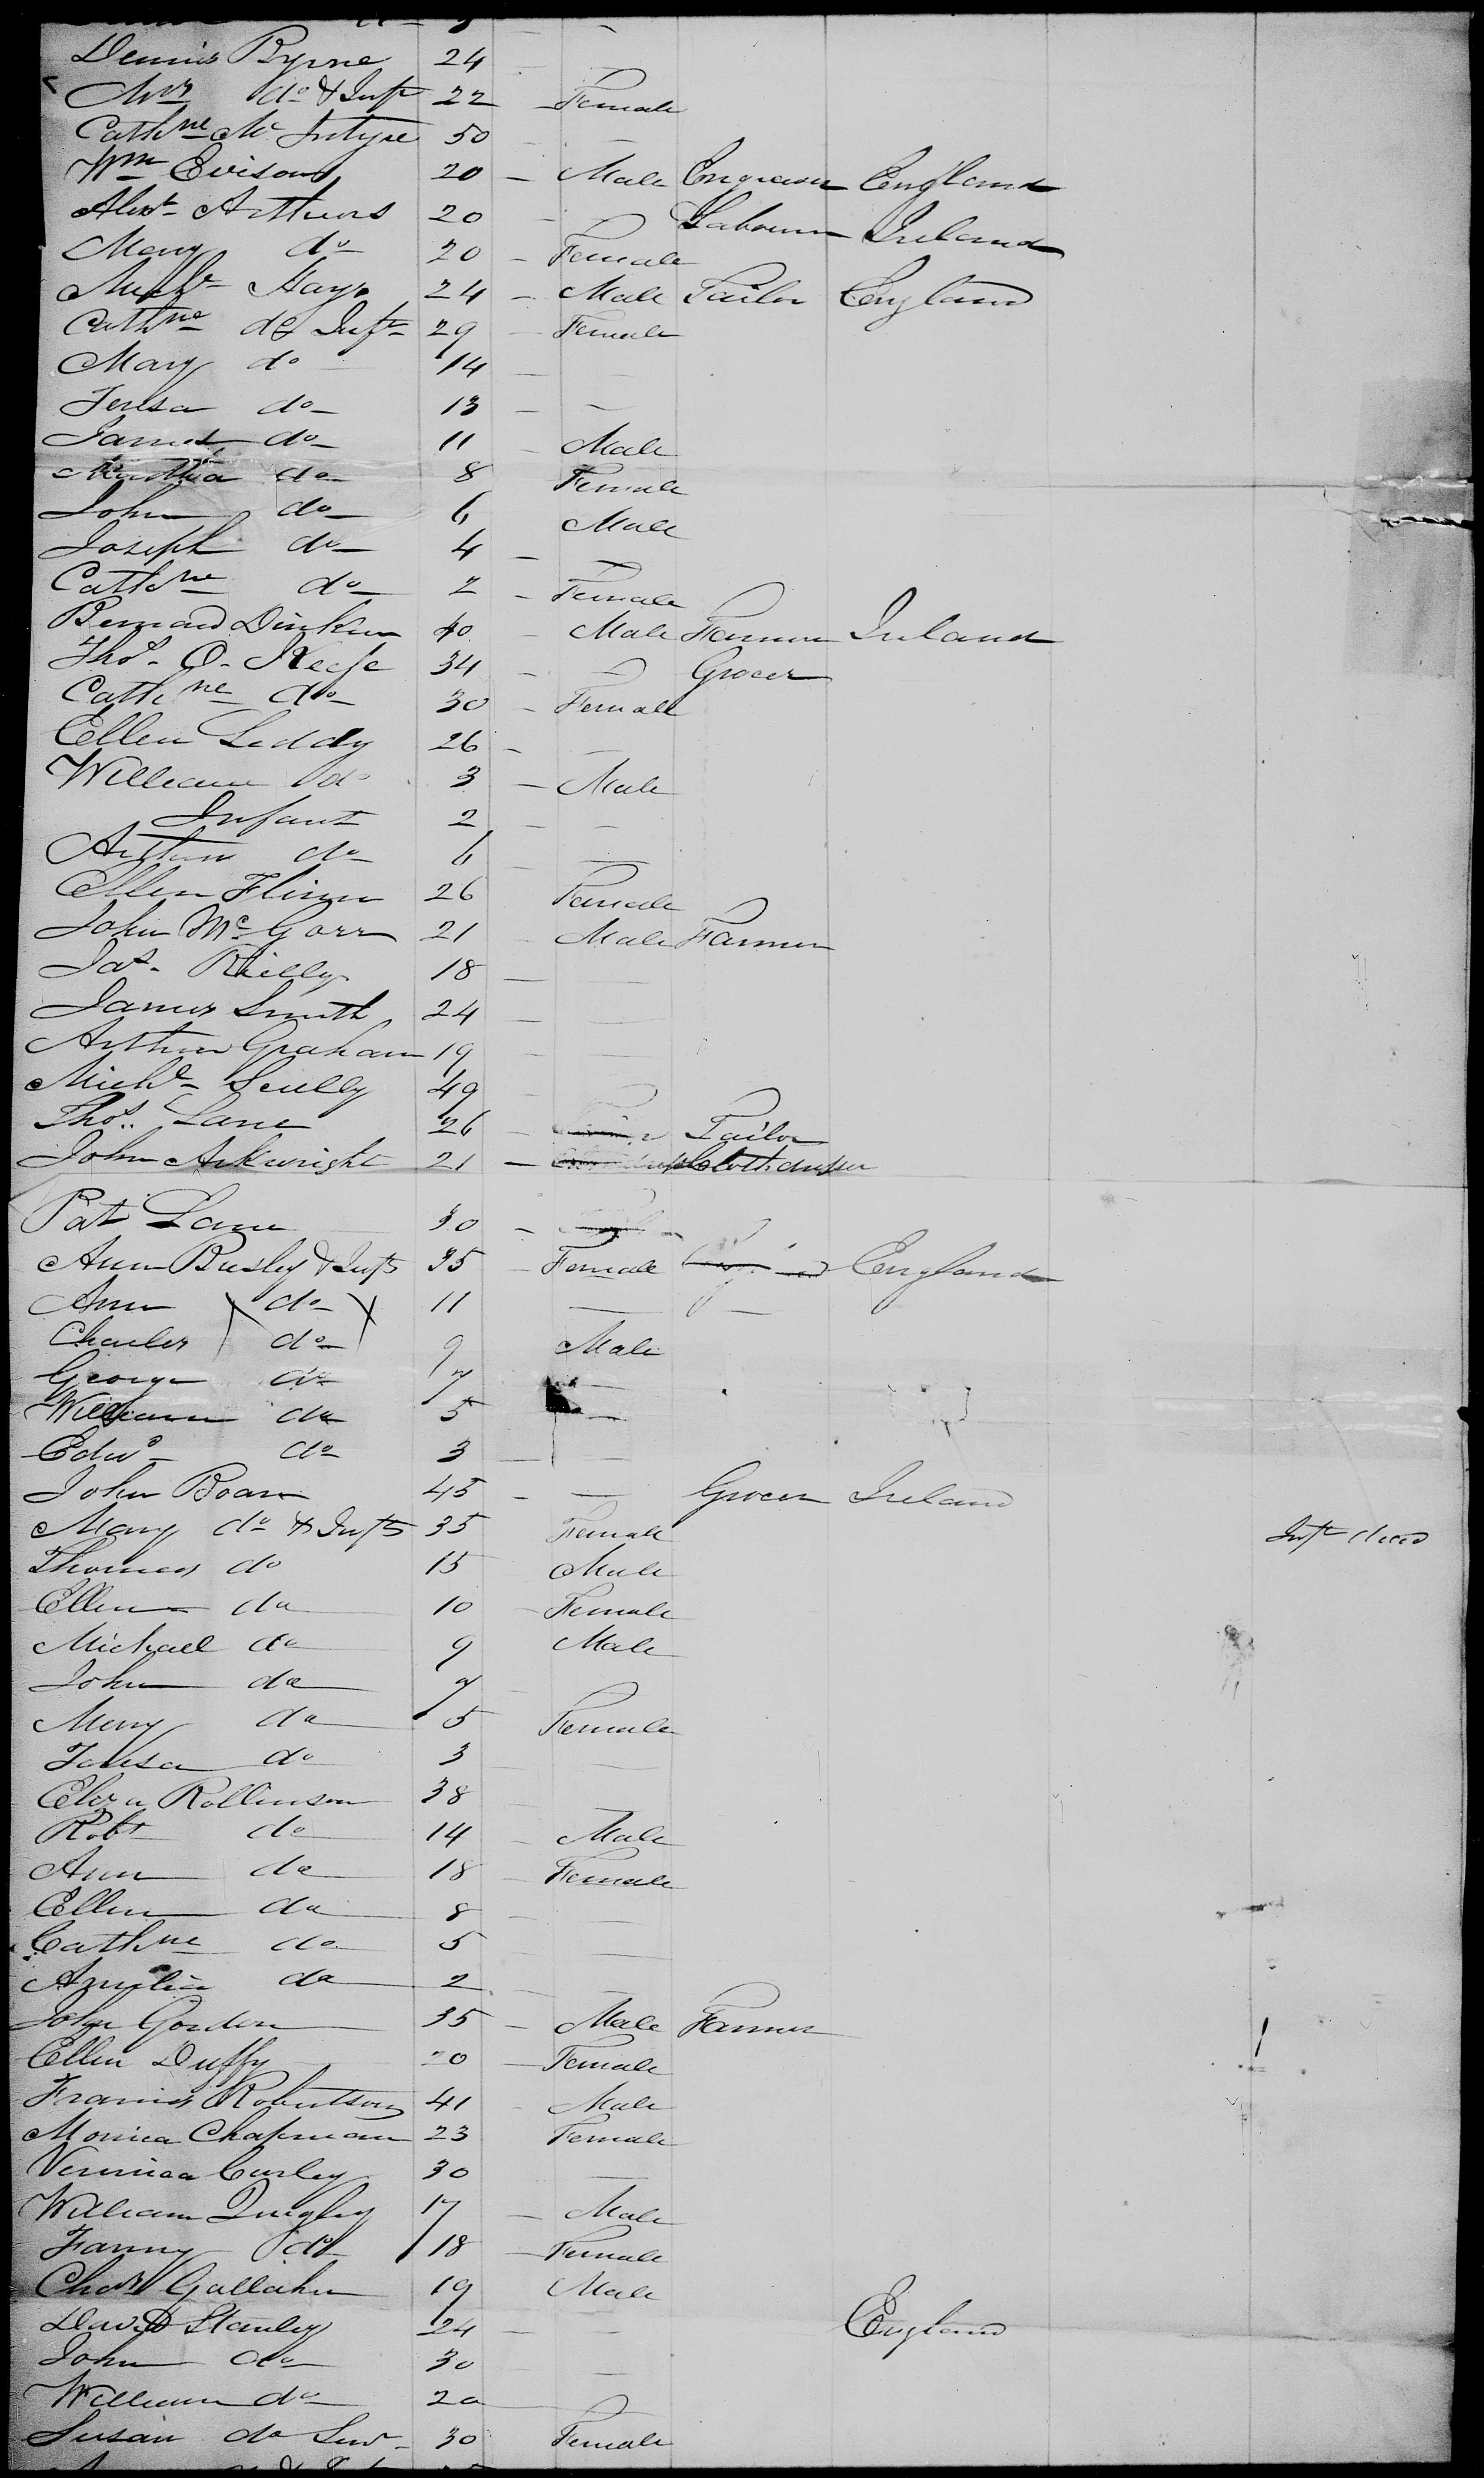 Dennis Byrne 24 — —
Mrs do & Inft 22 — Female
Cathne Mc Intyre 50 — —
Wm Evison 20 — Male Engraver England
Alext Arthurs 20 — — Labourer Ireland
Mary do 20 — Female
Michl Hays 24 — Male Tailor England
Cathne do & Inft 29 — Female
Mary do 14 — —
Teresa do 13 — —
James do 11 — Male
Martha do 8 Female
John do 6 Male
Joseph do 4 — —
Cathne do 2 — Female
Bernard 40 — Male Farmer Ireland
Thos. O. Keefe 34 — — Grocer
Cathne do 30 — Female
Ellen Leddy 26 — —
William do 3 — Male
Infant 2 — —
Arthur do 6 — —
Ellen Flinn 26 Female
John Mc Garr 21 — Male Farmer
Jas. Rielly 18 — —
James Smith 24 — —
Arthur Graham 19 — —
Michl Scully 49 —
Thos. Lane 26 — Tailor
John Arkwright 21 — Cloth dresser
Pat Lane 30 —
Ann Busley & Inft 35 — Female England
Ann do 11 —
Charles do 9 Male
George do 7 —
William do 5 —
Edwd do 3 — —
John Boan 45 — — Grocer Ireland
Mary do & Inft 35 Female Inft dead
Thomas do 15 Male
Ellen do 10 — Female
Michael do 9 Male
John do 7 —
Mary do 5 Female
Teresa do 3 —
Eliza Rollinson 38 —
Robt do 14 — Male
Ann do 18 — Female
Ellen do 8 — —
Cathne do 5 —
Amelia do 2 —
John Gordon 35 — Male Farmer
Ellen Duffy 20 — Female
Francis Robertson 41 — Male
Monica Chapman 23 Female
Veronica Curley 30 —
William Quigley 17 — Male
Fanny do 18 — Female
Chas Gallaher 19 Male
David Stanley 24 — — England
John do 30 —
William do 20 —
Susan do Senr 30 Female